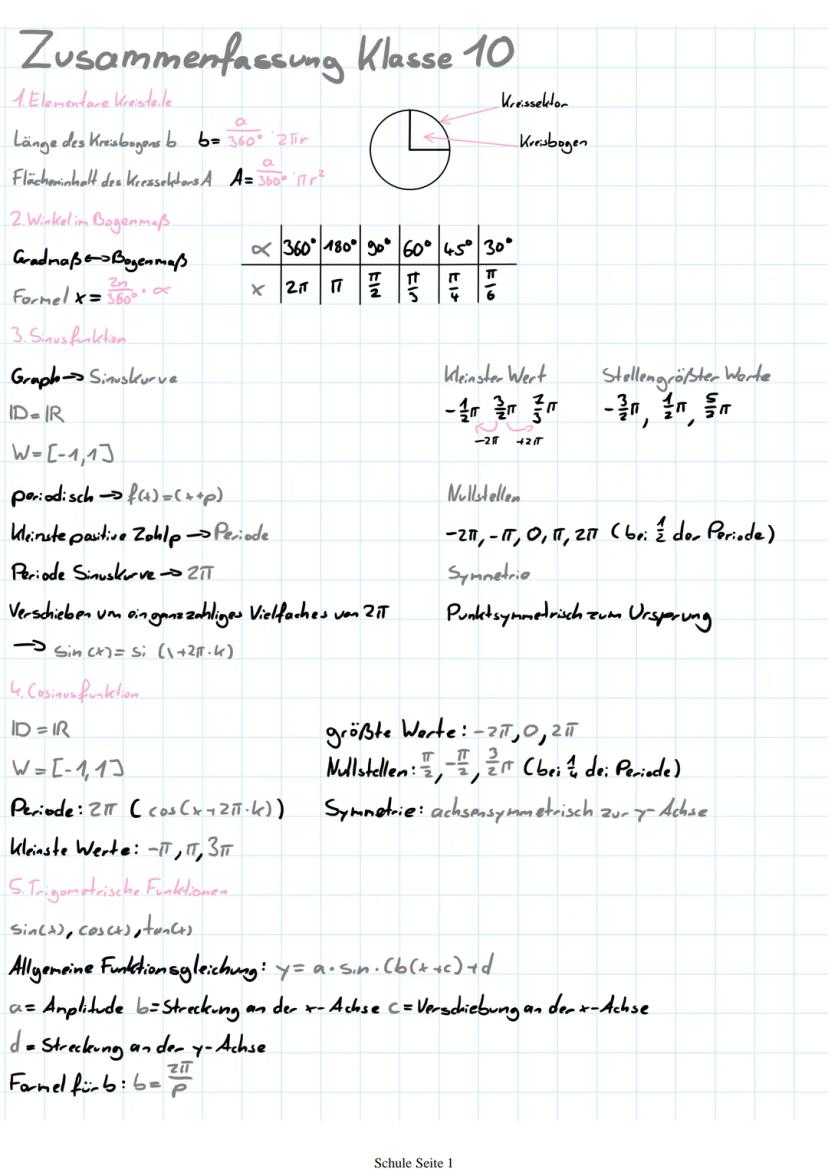 Zusammenfassung Klasse 10
1. Elementare Kreisteile
Kreissektor
Länge des Kreisbogens b b = a/360° · 2πr
Kreisbogen
Flächeninhalt des Kreissektors A A = a/360° · πr²
2. Winkel im Bogenmaß
Gradmaß ↔ Bogenmaß
Formel x = 2π/360° · ∝
∝ 360° 180° 90° 60° 45° 30°
x 2π π π/2 π/3 π/4 π/6
3. Sinusfunktion
Graph → Sinuskurve
ID = IR
W = [-1,1]
periodisch → f(x) = (x+p)
kleinste positive Zahl p → Periode
Periode Sinuskurve → 2π
Verschieben um ein ganzzahliges Vielfaches von 2π
→ sin (x) = si (\+2π·k)
kleinster Wert
-1/2π 3/2π 7/3π
-2π +2π
Stellen größter Werte
-3/2π, 1/2π, 5/2π
Nullstellen
-2π, -π, 0, π, 2π (bei 1/2 der Periode)
Symmetrie
Punktsymmetrisch zum Ursprung
4. Cosinusfunktion
ID = IR
W = [-1,1]
Periode: 2π ( cos(x+2π·k))
kleinste Werte: -π, π, 3π
größte Werte: -2π, 0, 2π
Nullstellen: π/2, -π/2, 3/2π (bei 1/4 der Periode)
Symmetrie: achsensymmetrisch zur y-Achse
5. Trigometrische Funktionen
sin(x), cos(x), tan(x)
Allgemeine Funktionsgleichung: y = a · sin · (b(x+c)+d
a = Amplitude b = Streckung an der x-Achse c = Verschiebung an der x-Achse
d = Streckung an der y-Achse
Formel für b: b = 2π/p
Schule Seite 1